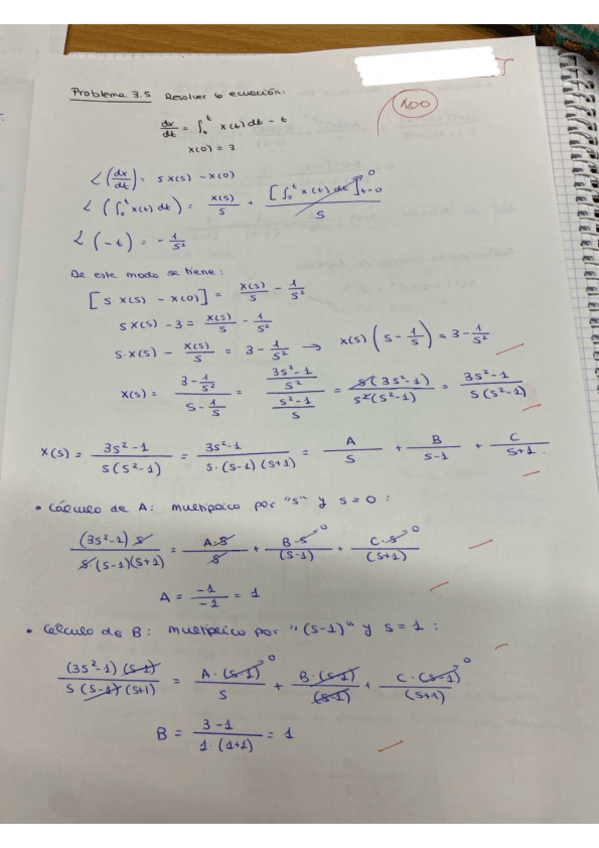 Problema 3.5 Resolver la ecuación:
100
dx/dt = ∫₀ᵗ x(t) dt - t
x(0) = 3
L(dx/dt) = s x(s) - x(0)
L(∫₀ᵗ x(t) dt) = x(s)/s + [∫₀ᵗ x(t) dt]ₜ₌₀/s 0
L(-t) = - 1/s²
De este modo se tiene:
[s · x(s) - x(0)] = x(s)/s - 1/s²
s x(s) - 3 = x(s)/s - 1/s²
s · x(s) - x(s)/s = 3 - 1/s² → x(s) (s - 1/s) = 3 - 1/s²
x(s) = (3 - 1/s²)/(s - 1/s) = ((3s² - 1)/s²)/((s² - 1)/s) = s(3s² - 1)/(s²(s² - 1)) = (3s² - 1)/(s(s² - 1))
x(s) = (3s² - 1)/(s(s² - 1)) = (3s² - 1)/(s · (s - 1)(s + 1)) = A/s + B/(s - 1) + C/(s + 1)
• Cálculo de A: multiplico por "s" y s = 0:
(3s² - 1) s/(s(s - 1)(s + 1)) = A · s/s + B · s/(s - 1) 0 + C · s/(s + 1) 0
A = -1/-1 = 1
• Cálculo de B: multiplico por "(s - 1)" y s = 1:
(3s² - 1)(s - 1)/(s(s - 1)(s + 1)) = A · (s - 1)/s 0 + B · (s - 1)/(s - 1) + C · (s - 1)/(s + 1) 0
B = (3 - 1)/(1 · (1 + 1)) = 1